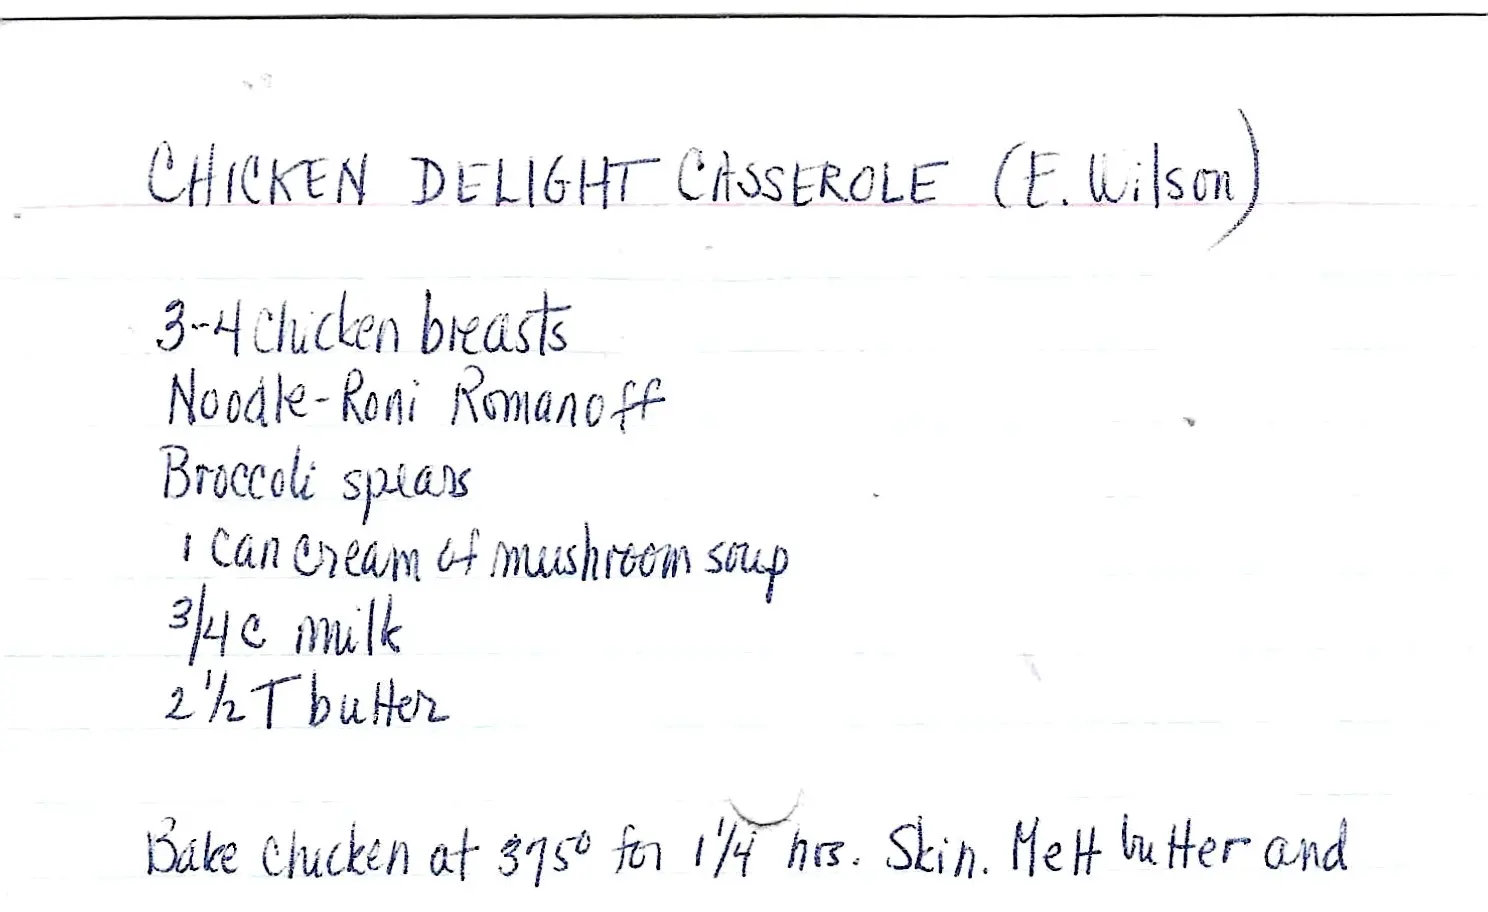 CHICKEN DELIGHT CASSEROLE (E. Wilson)
3-4 Chicken breasts
Noodle-Roni Romanoff
Broccoli spears
1 can cream of mushroom soup
3/4 c milk
2 1/2 T butter
Bake chicken at 375° for 1 1/4 hrs. Skin. Melt butter and